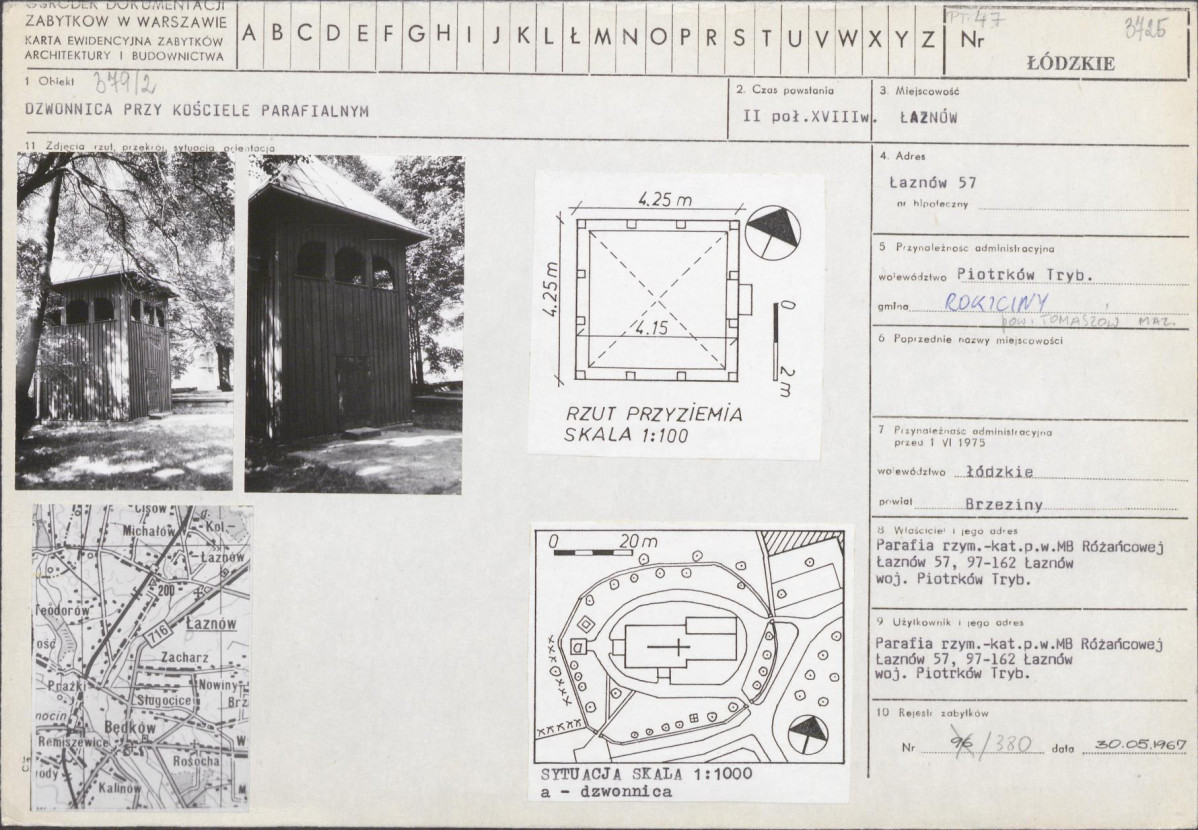 OŚRODEK DOKUMENTACJI
ZABYTKÓW W WARSZAWIE
KARTA EWIDENCYJNA ZABYTKÓW
ARCHITEKTURY I BUDOWNICTWA
A B C D E F G H I J K L Ł M N O P R S T U V W X Y Z
PT. 47
3725
Nr
ŁÓDZKIE
1 Obiekt 379/2
DZWONNICA PRZY KOŚCIELE PARAFIALNYM
2. Czas powstania
II poł.XVIIIw.
3. Miejscowość
ŁAZNÓW
11 Zdjęcia rzut, przekrój, sytuacja, orientacja
4. Adres
Łaznów 57
nr hipoteczny
5 Przynależność administracyjna
województwo Piotrków Tryb.
gmina ROKICINY
pow. TOMASZÓW MAZ.
6 Poprzednie nazwy miejscowości
7 Przynależność administracyjna
przed 1 VI 1975
województwo łódzkie
powiat Brzeziny
8 Właściciel i jego adres
Parafia rzym.-kat.p.w.MB Różańcowej
Łaznów 57, 97-162 Łaznów
woj. Piotrków Tryb.
9 Użytkownik i jego adres
Parafia rzym.-kat.p.w.MB Różańcowej
Łaznów 57, 97-162 Łaznów
woj. Piotrków Tryb.
10 Rejestr zabytków
Nr 96/380 data 30.05.1967
4.25 m
4.25 m
4.15
0
2m
RZUT PRZYZIEMIA
SKALA 1:100
Cisów
Michałów
Kol.-
Łaznów
200
Teodorów
716
Łaznów
Zacharz
Prażki
Nowiny
Sługocice
Brz
nocin
Będków
Remiszewice
W
Rosocha
Kalinów
0 20 m
a
SYTUACJA SKALA 1:1000
a - dzwonnica